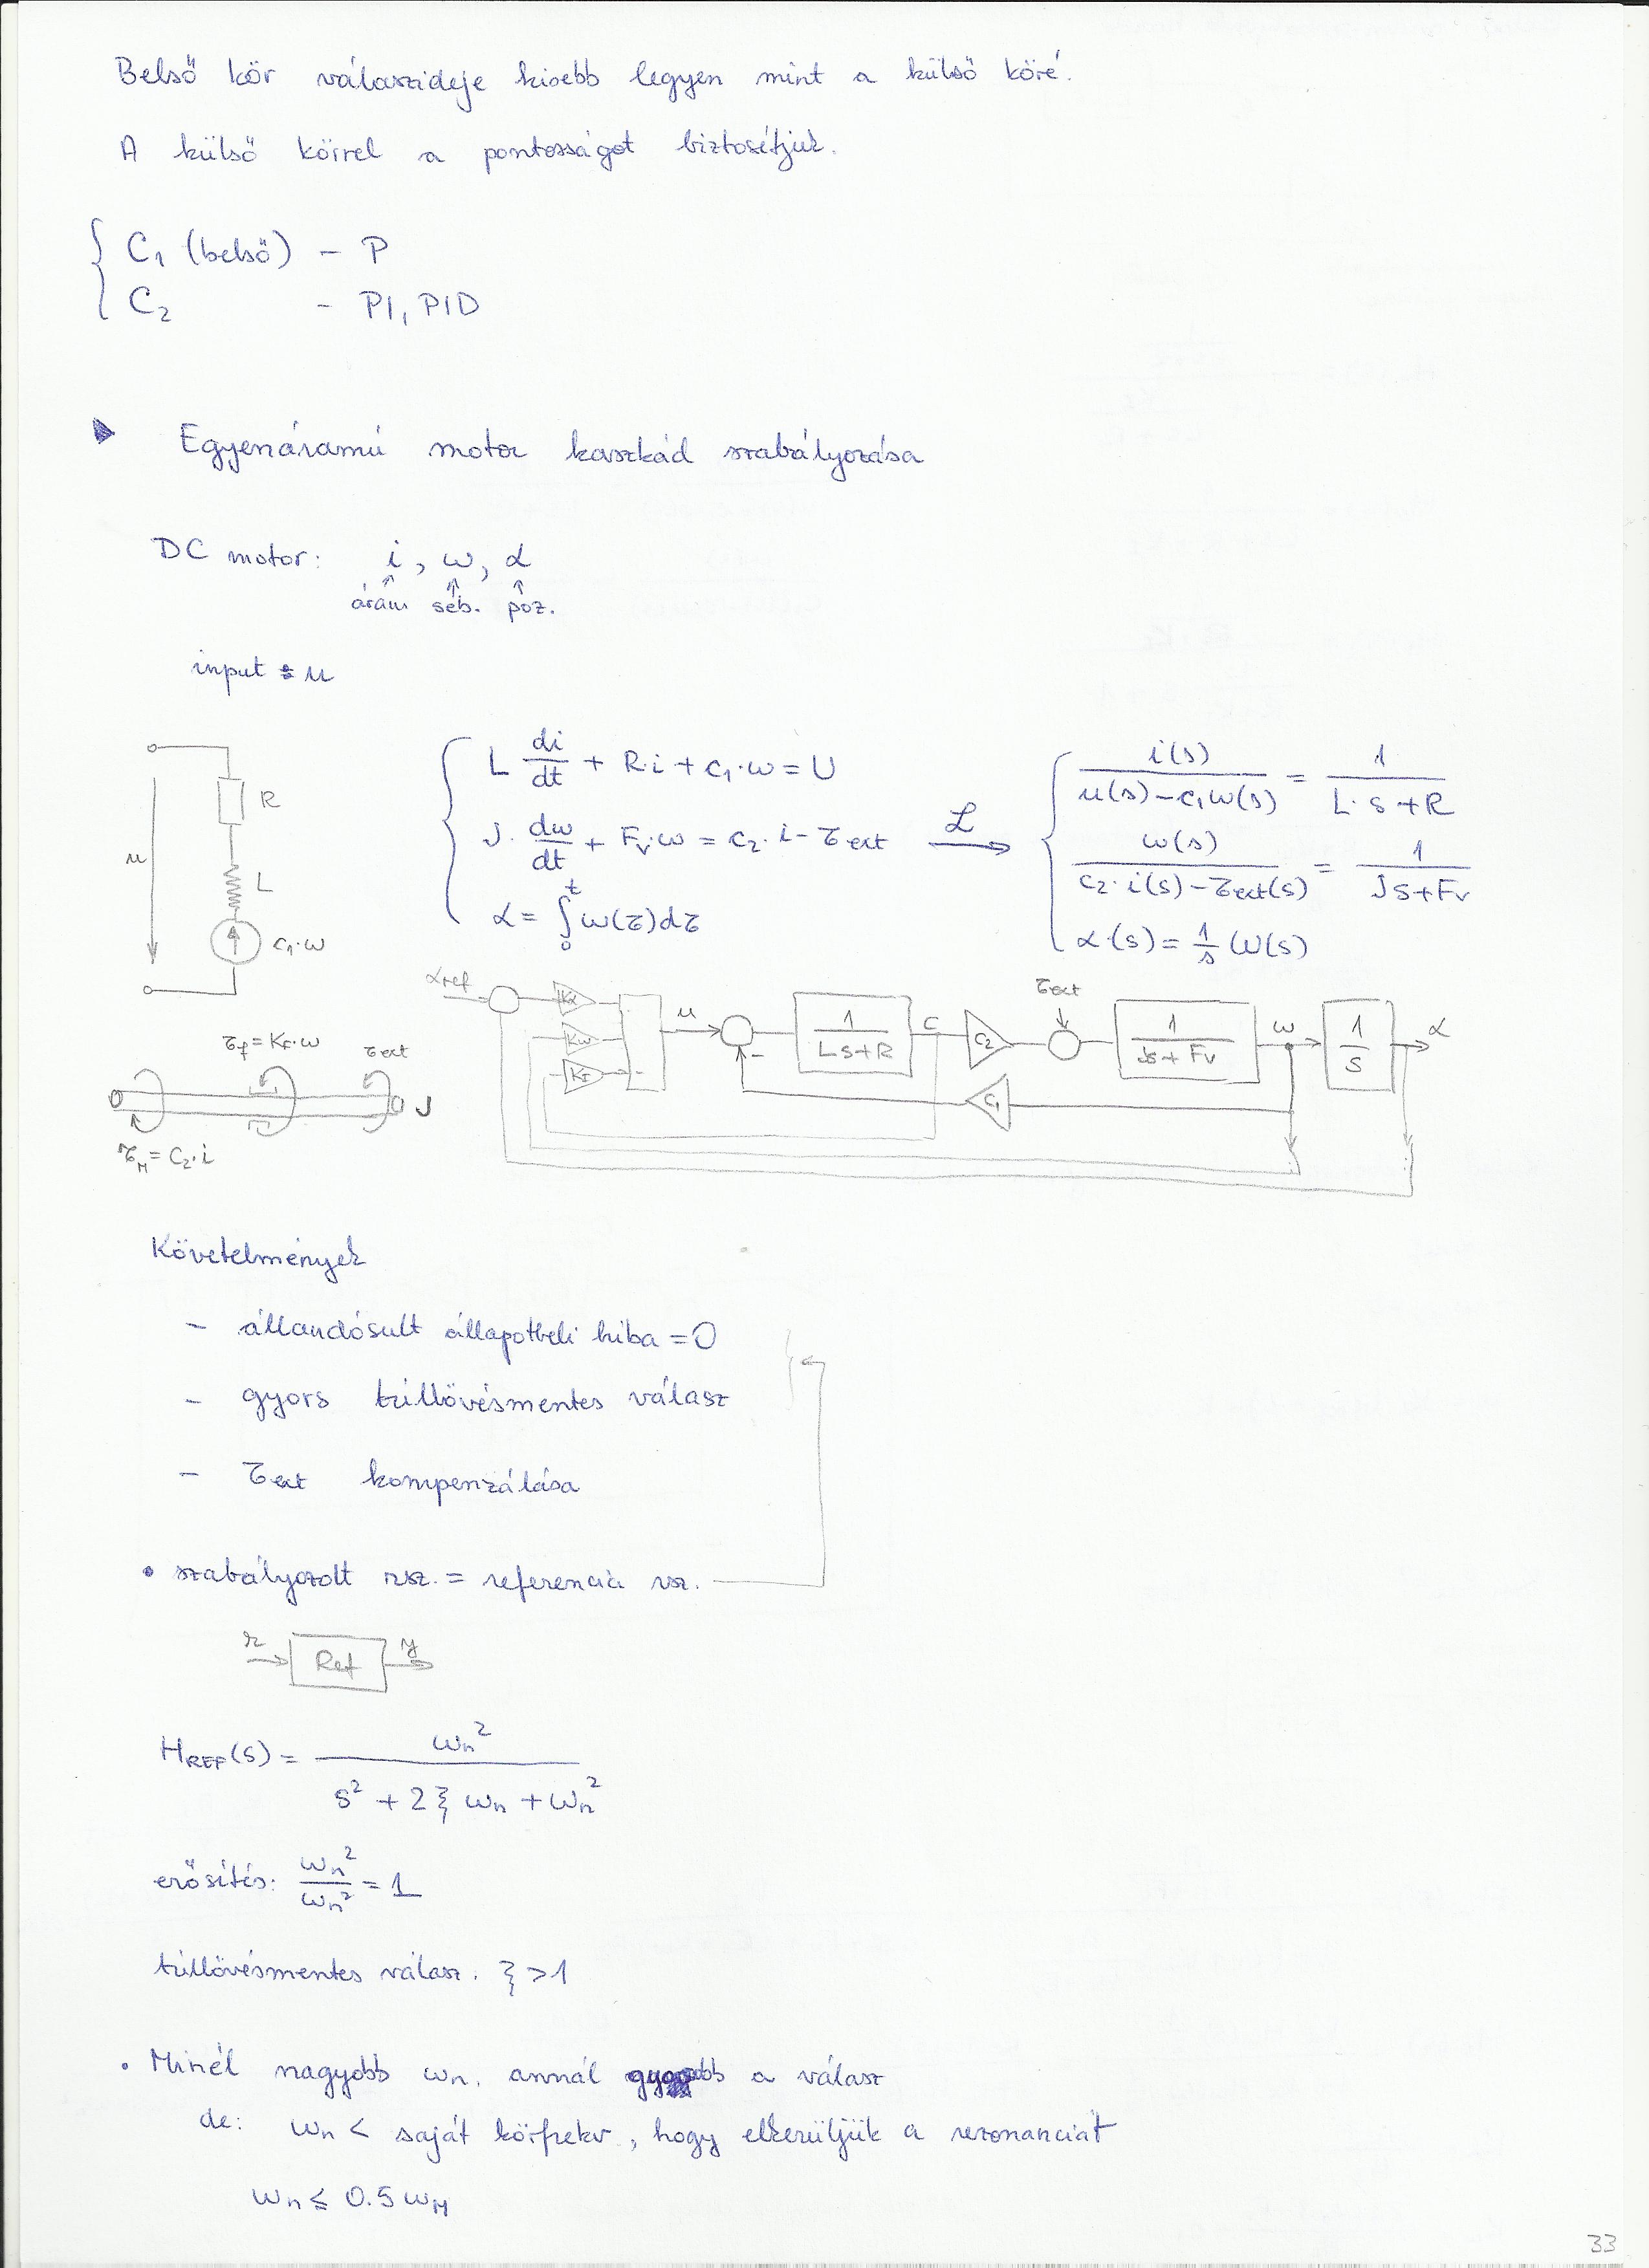 Belső kör válaszideje kisebb legyen mint a külső köré.
A külső körrel a pontosságot biztosítjuk.
C₁ (belső) – P
C₂ – PI, PID
Egyenáramú motor kaszkád szabályozása
DC motor: i, ω, α
áram seb. poz.
input : u
L di/dt + R·i + c₁·ω = U
J· dω/dt + Fᵥ·ω = c₂·i – τext
α = ∫₀ᵗ ω(τ)dτ
ℒ
i(s)/(u(s) – c₁ω(s)) = 1/(L·s+R)
ω(s)/(c₂·i(s) – τext(s)) = 1/(Js+Fv)
α·(s) = 1/s ω(s)
u
R
L
c₁·ω
αref
Kα
Kω
KI
u
–
1/(Ls+R)
C
C₂
τext
1/(Js+Fv)
ω
1/s
α
C₁
τf = KF·ω
τext
J
τM = C₂·i
Követelmények
– állandósult állapotbeli hiba = 0
– gyors túllövésmentes válasz
– τext kompenzálása
• szabályozott rsz. = referencia rsz.
r
Ref
y
HREF(s) = ωn²/(s² + 2ξ ωn + ωn²)
erősítés: ωn²/ωn² = 1
túllövésmentes válasz. ξ > 1
• Minél nagyobb ωn, annál gyorsabb a válasz
de: ωn < saját körfrekv, hogy elkerüljük a rezonanciát
ωn ≤ 0.5 ωM
33